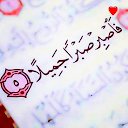 فَاصْبِرْ صَبْرًا جَمِيلًا ۝٥